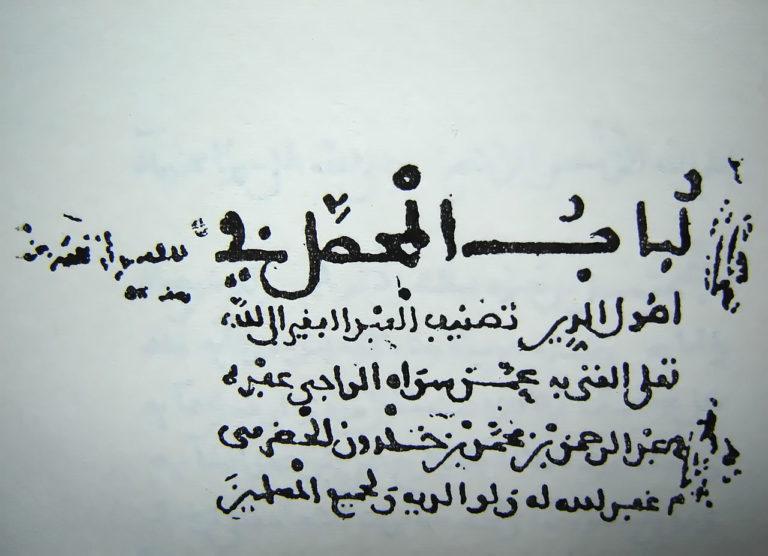 لُبابُ المحصّل في
اصول الدين تصنيف العبد الفقير الى الله
تعلى الغني به عمّن سواه الراجي عفوه
عبد الرحمن بن محمّد بن خلدون الحضرمي
غفر الله له ولوالديه ولجميع المسلمين